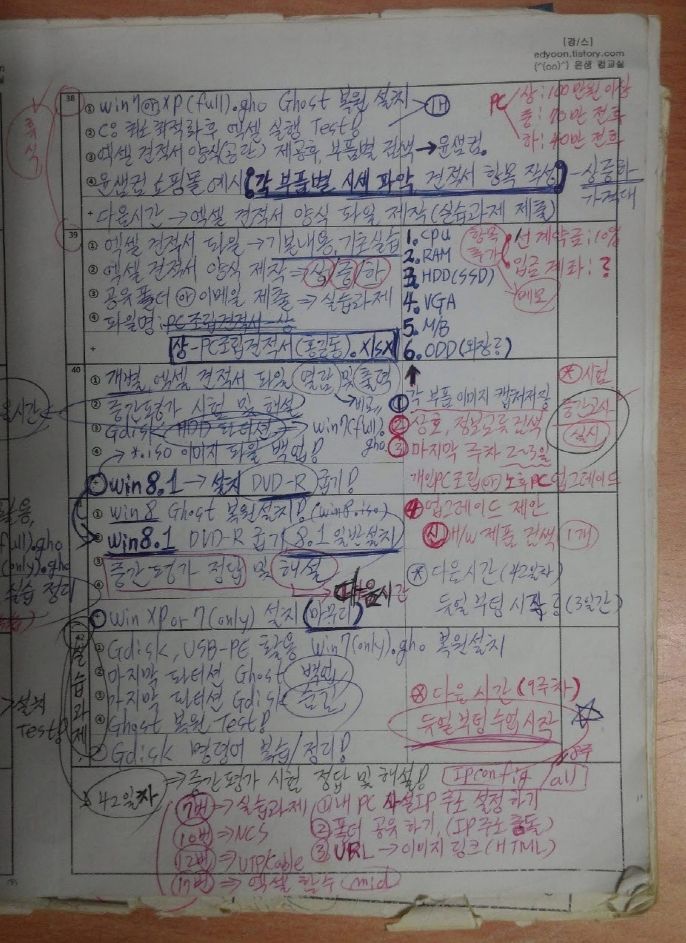 [강/스]
edyoon.tistory.com
(^(oo)^) 윤샘 컴교실
38
① win7 or XP(full).gho Ghost 복원 설치 → 1H
② C:\ 최소 최적화 후 엑셀 실행 Test!
③ 엑셀 견적서 양식(공란) 제공후, 부품별 검색 → 윤샘컴.
④ 윤샘컴 쇼핑몰 예시 (각 부품별 시세 파악 견적서 항목 작성) - 상중하 가격대
+ 다음시간 → 엑셀 견적서 양식 파일 제작 (실습과제 제출)
PC
상:100만원 이상
중:70만 전후
하:40만 전후
휴식
39
① 엑셀 견적서 파일 → 기본내용, 기초실습
② 엑셀 견적서 양식 제작 ⇒ 상/중/하
③ 공유폴더 or 이메일 제출 ⇒ 실습과제
④ 파일명: PC조립견적서-상
+ 상-PC조립견적서(홍길동).xlsx
1. CPU
2. RAM
3. HDD(SSD)
4. VGA
5. M/B
6. ODD(외장용)
항목 추가
선 계약금:10%
입금 계좌: ?
메모
40
① 개별, 엑셀 견적서 파일 열람 및 출력
② 중간평가 시험 및 해설
③ Gdisk HDD 파티션 → win7(full).gho
④ *.iso 이미지 파일 백업!
+ win8.1 → 설치 DVD-R 굽기!
① 각 부품 이미지 캡처저장
② 상호, 정보교류 검색
③ 마지막 주차 2~3일
개인PC조립 or 노후PC업그레이드
④ 업그레이드 제안
⑤ H/W 제품 검색 1개
※ 시험
중간고사
실시
① win8 Ghost 복원설치! (win8.iso)
② win8.1 DVD-R 굽기 8.1 일반설치
③ 중간평가 정답 및 해설
④ 다음시간
Win XP or 7(only) 설치 (마무리)
※ 다음시간 (42일차)
듀얼부팅 시작 (3일간)
실습과제
① Gdisk, USB-PE 활용 win7(only).gho 복원설치
② 마지막 파티션 Ghost 백업
③ 마지막 파티션 Gdisk 숨김
④ Ghost 복원 Test!
Gdisk 명령어 복습/정리!
※ 다음시간 (9주차)
듀얼부팅 수업시작
8주
42일차 → 중간평가 시험 정답 및 해설!
ipconfig /all
7번 → 실습과제
10번 ⇒ NCS
12번 ⇒ UTP Cable
17번 ⇒ 엑셀 함수 mid
① 내 PC 사설IP 주소 설정하기
② 폴더 공유하기, (IP주소 충돌)
③ URL → 이미지 링크 (HTML)
시간
활용,
full).gho
(only).gho
실습 정리
→ 설치
Test!